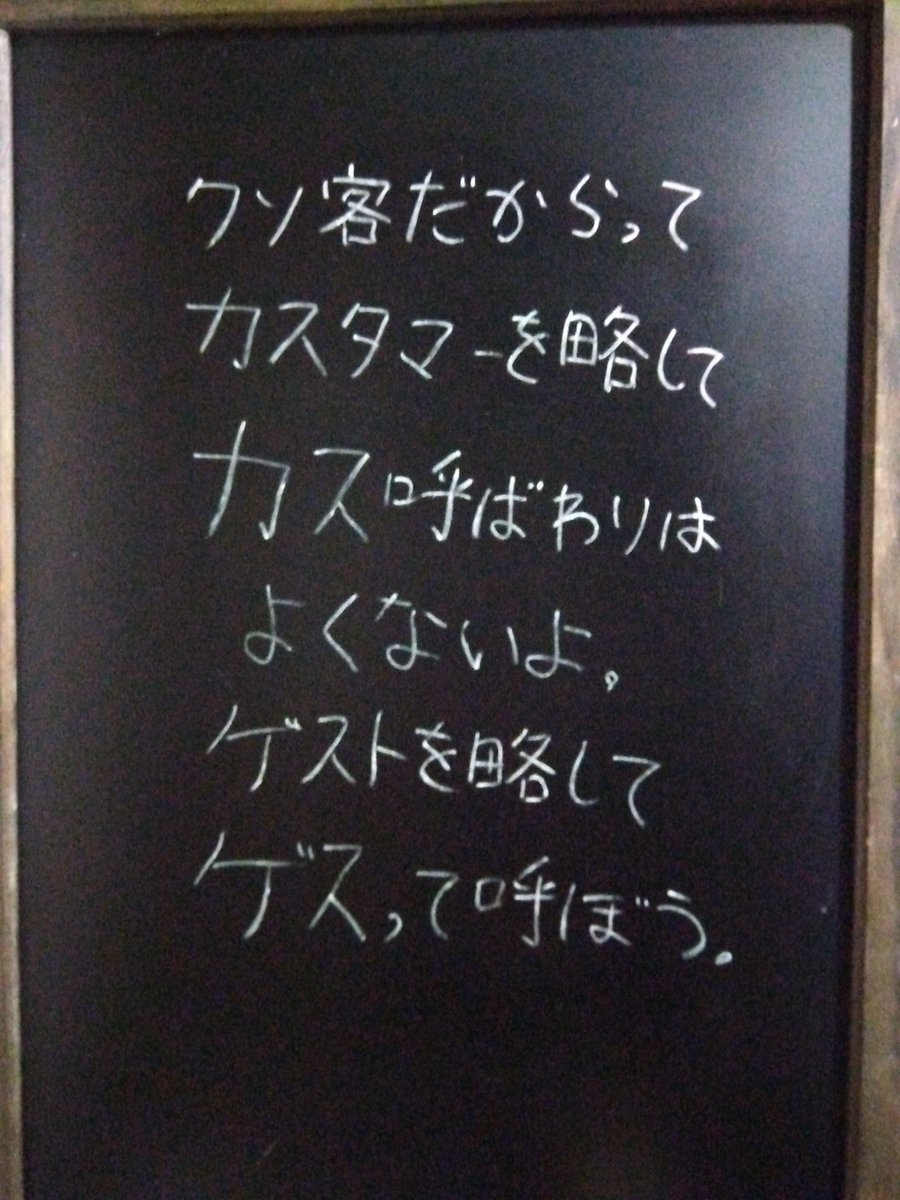 クソ客だからって
カスタマーを略して
カス呼ばわりは
よくないよ。
ゲストを略して
ゲスって呼ぼう。